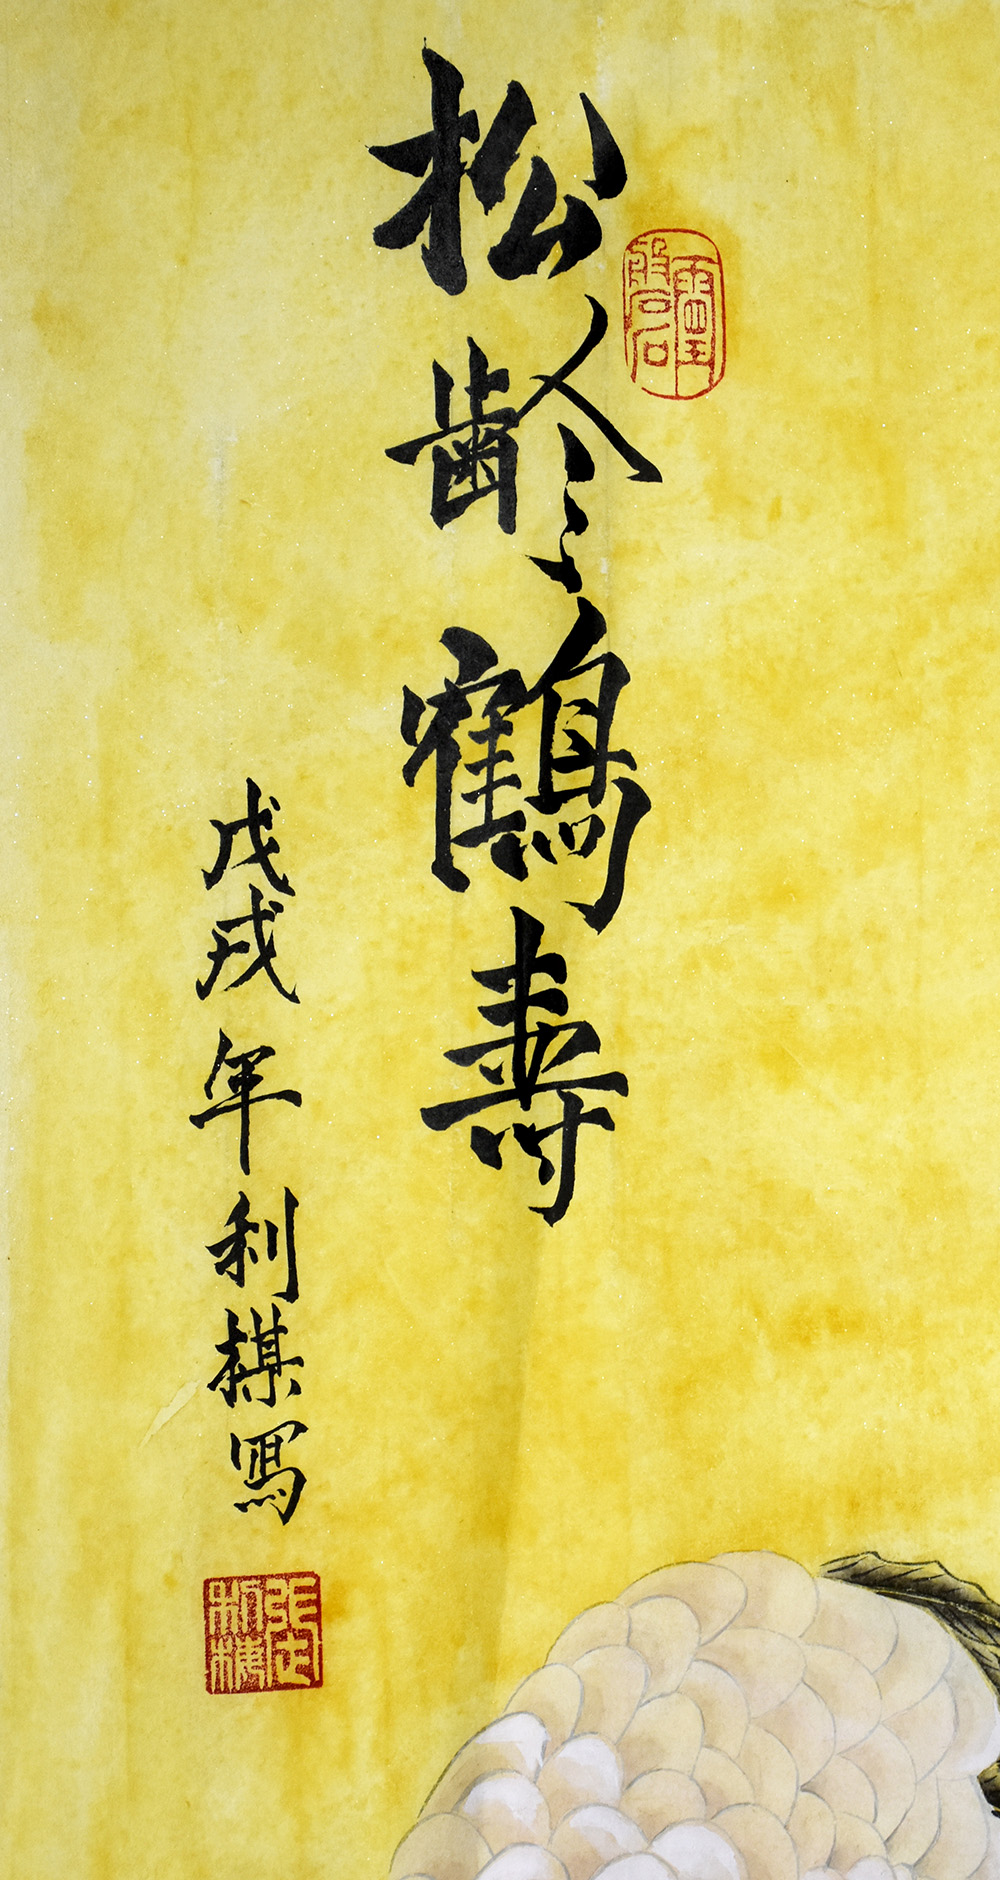 松齡鶴壽
戊戌年利棋寫